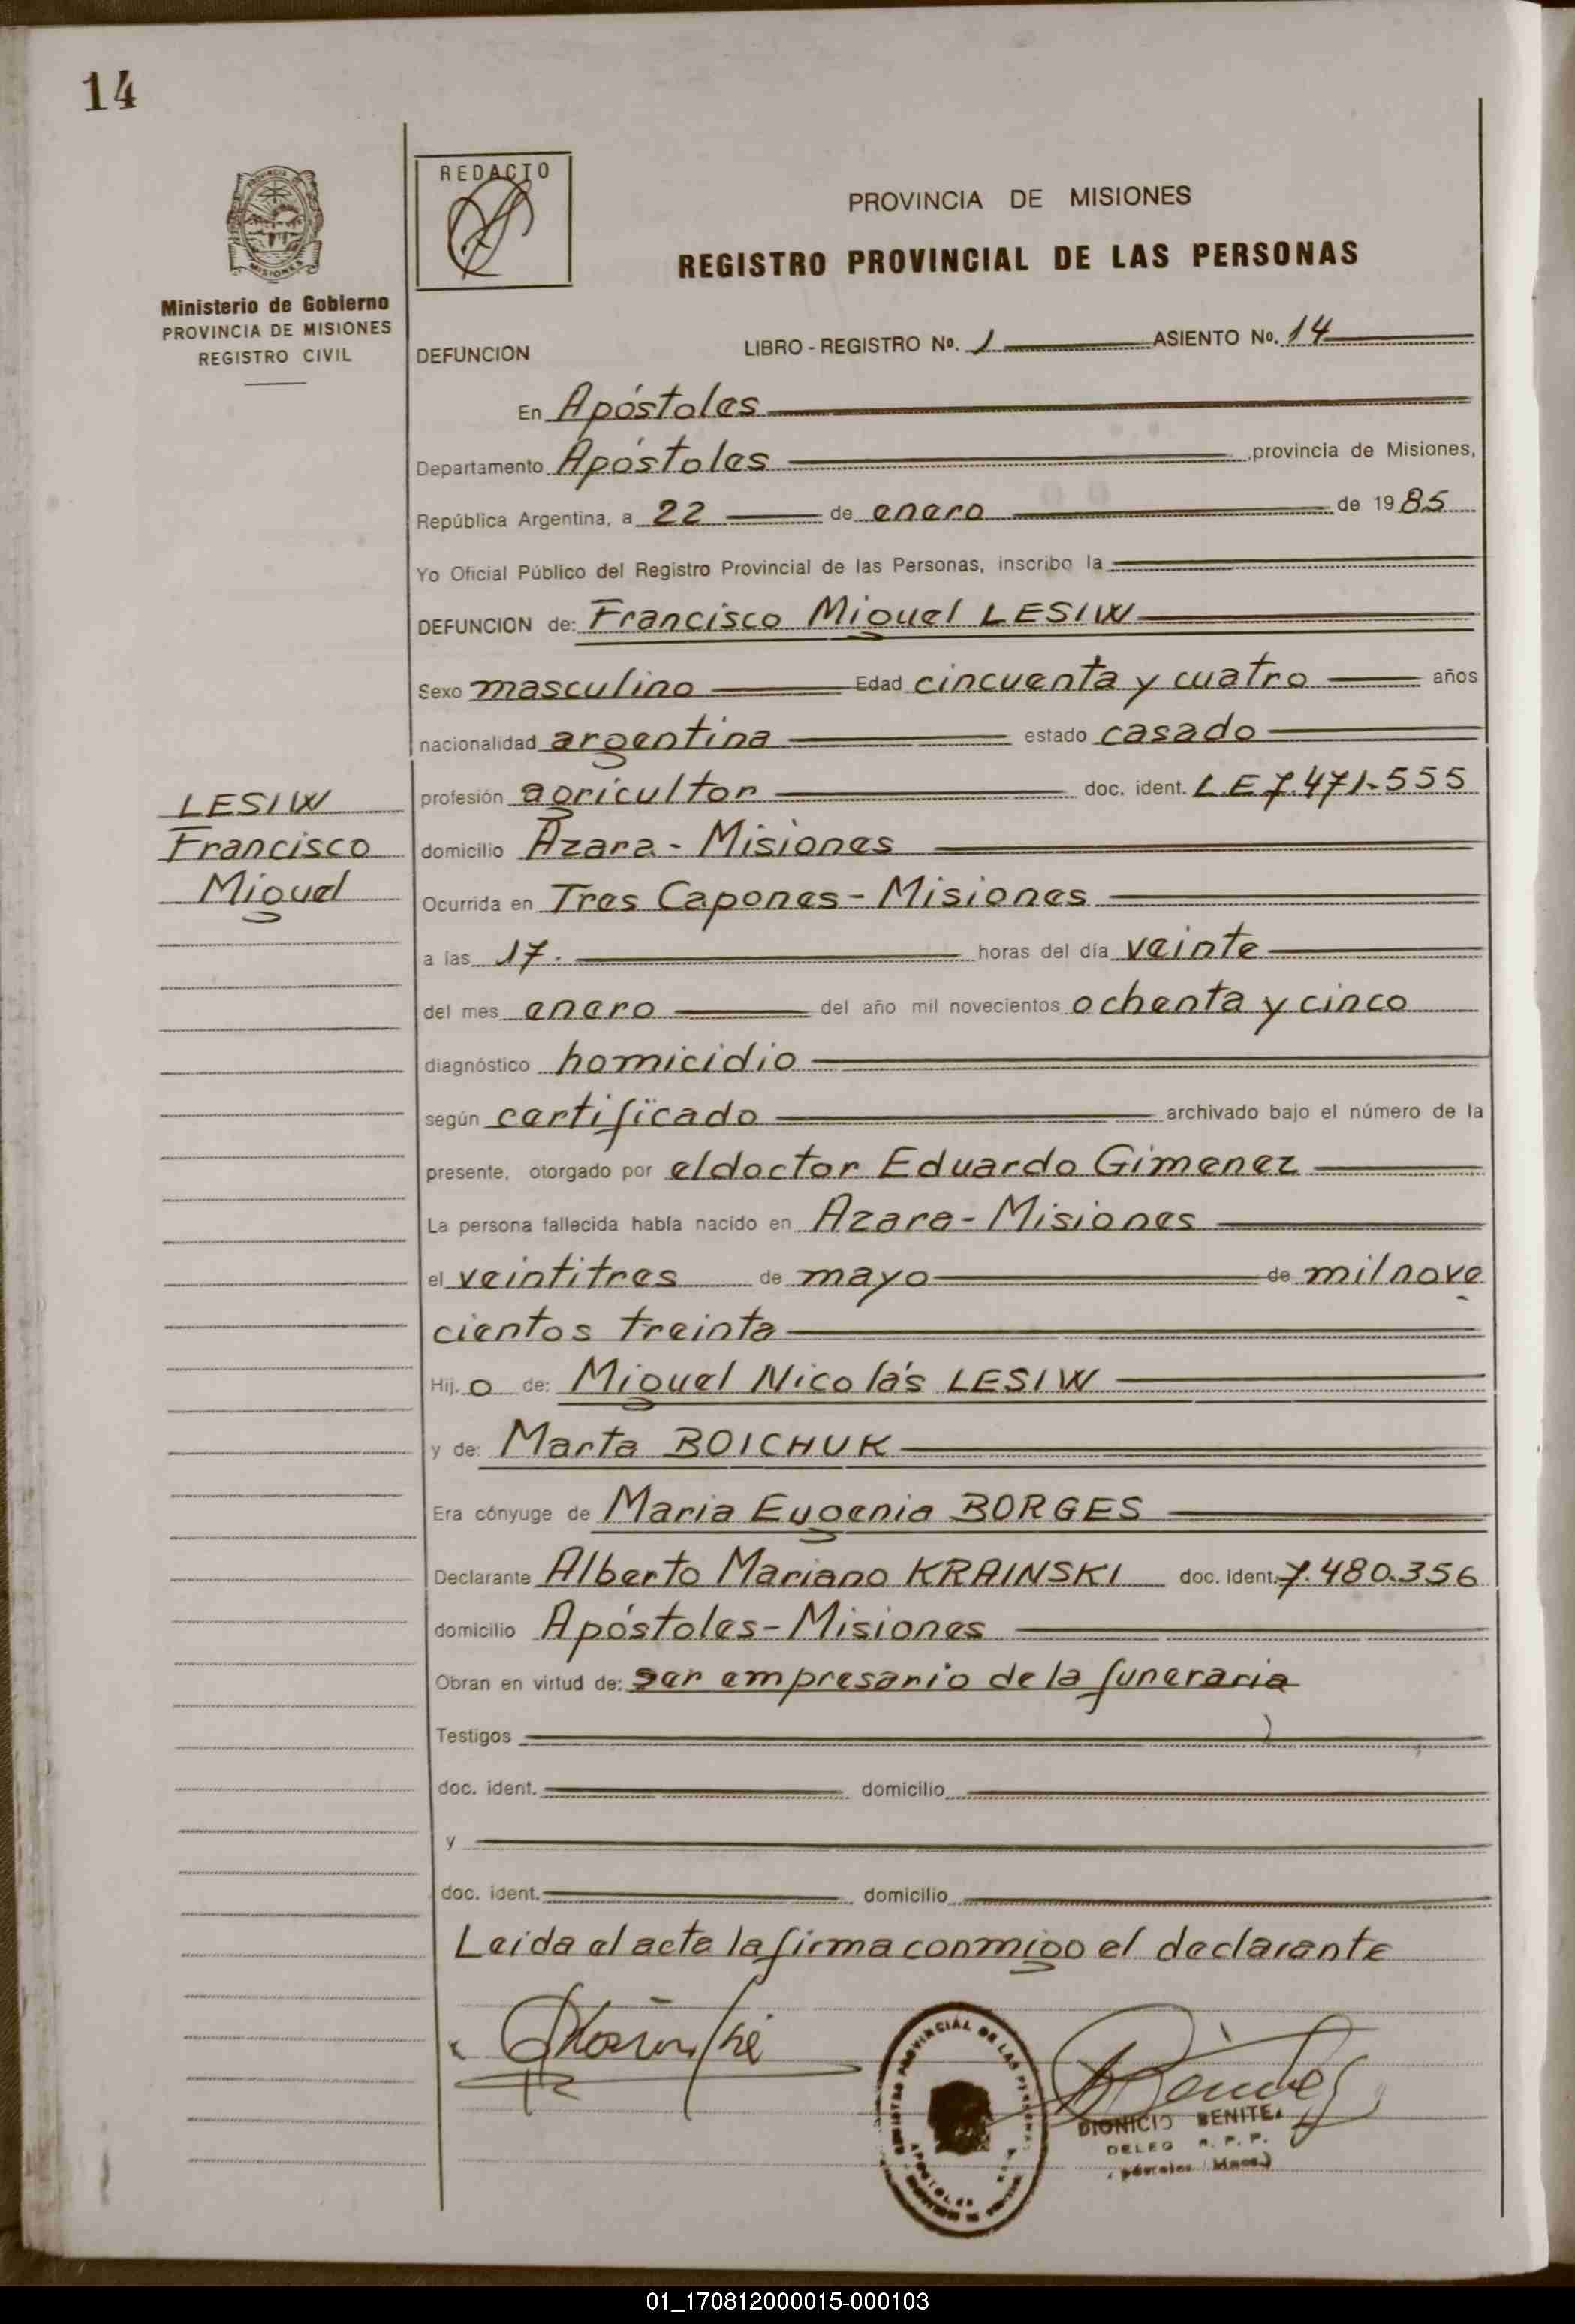 14
REDACTO
PROVINCIA DE MISIONES
REGISTRO PROVINCIAL DE LAS PERSONAS
Ministerio de Gobierno
PROVINCIA DE MISIONES
REGISTRO CIVIL
DEFUNCION LIBRO - REGISTRO Nº. 1 ASIENTO No. 14
En Apóstoles
Departamento Apóstoles , provincia de Misiones,
República Argentina, a 22 de enero de 1985
Yo Oficial Público del Registro Provincial de las Personas, inscribo la
DEFUNCION de: Francisco Miguel LESIW
Sexo masculino Edad cincuenta y cuatro años
nacionalidad argentina estado casado
profesión agricultor doc. ident. L.E 7.471.555
LESIW
Francisco
Miguel
domicilio Azara - Misiones
Ocurrida en Tres Capones - Misiones
a las 17. horas del día veinte
del mes enero del año mil novecientos ochenta y cinco
diagnóstico homicidio
según certificado archivado bajo el número de la
presente, otorgado por el doctor Eduardo Gimenez
La persona fallecida había nacido en Azara - Misiones
el veintitres de mayo de mil nove
cientos treinta
Hij. o de: Miguel Nicolás LESIW
y de: Marta BOICHUK
Era cónyuge de Maria Eugenia BORGES
Declarante Alberto Mariano KRAINSKI doc. ident. 7.480.356
domicilio Apóstoles - Misiones
Obran en virtud de: ser empresario de la funeraria
Testigos
doc. ident. domicilio
y
doc. ident. domicilio
Leida el acta la firma conmigo el declarante
DIONICIO BENITEZ
DELEG R. P. P.
01_170812000015-000103